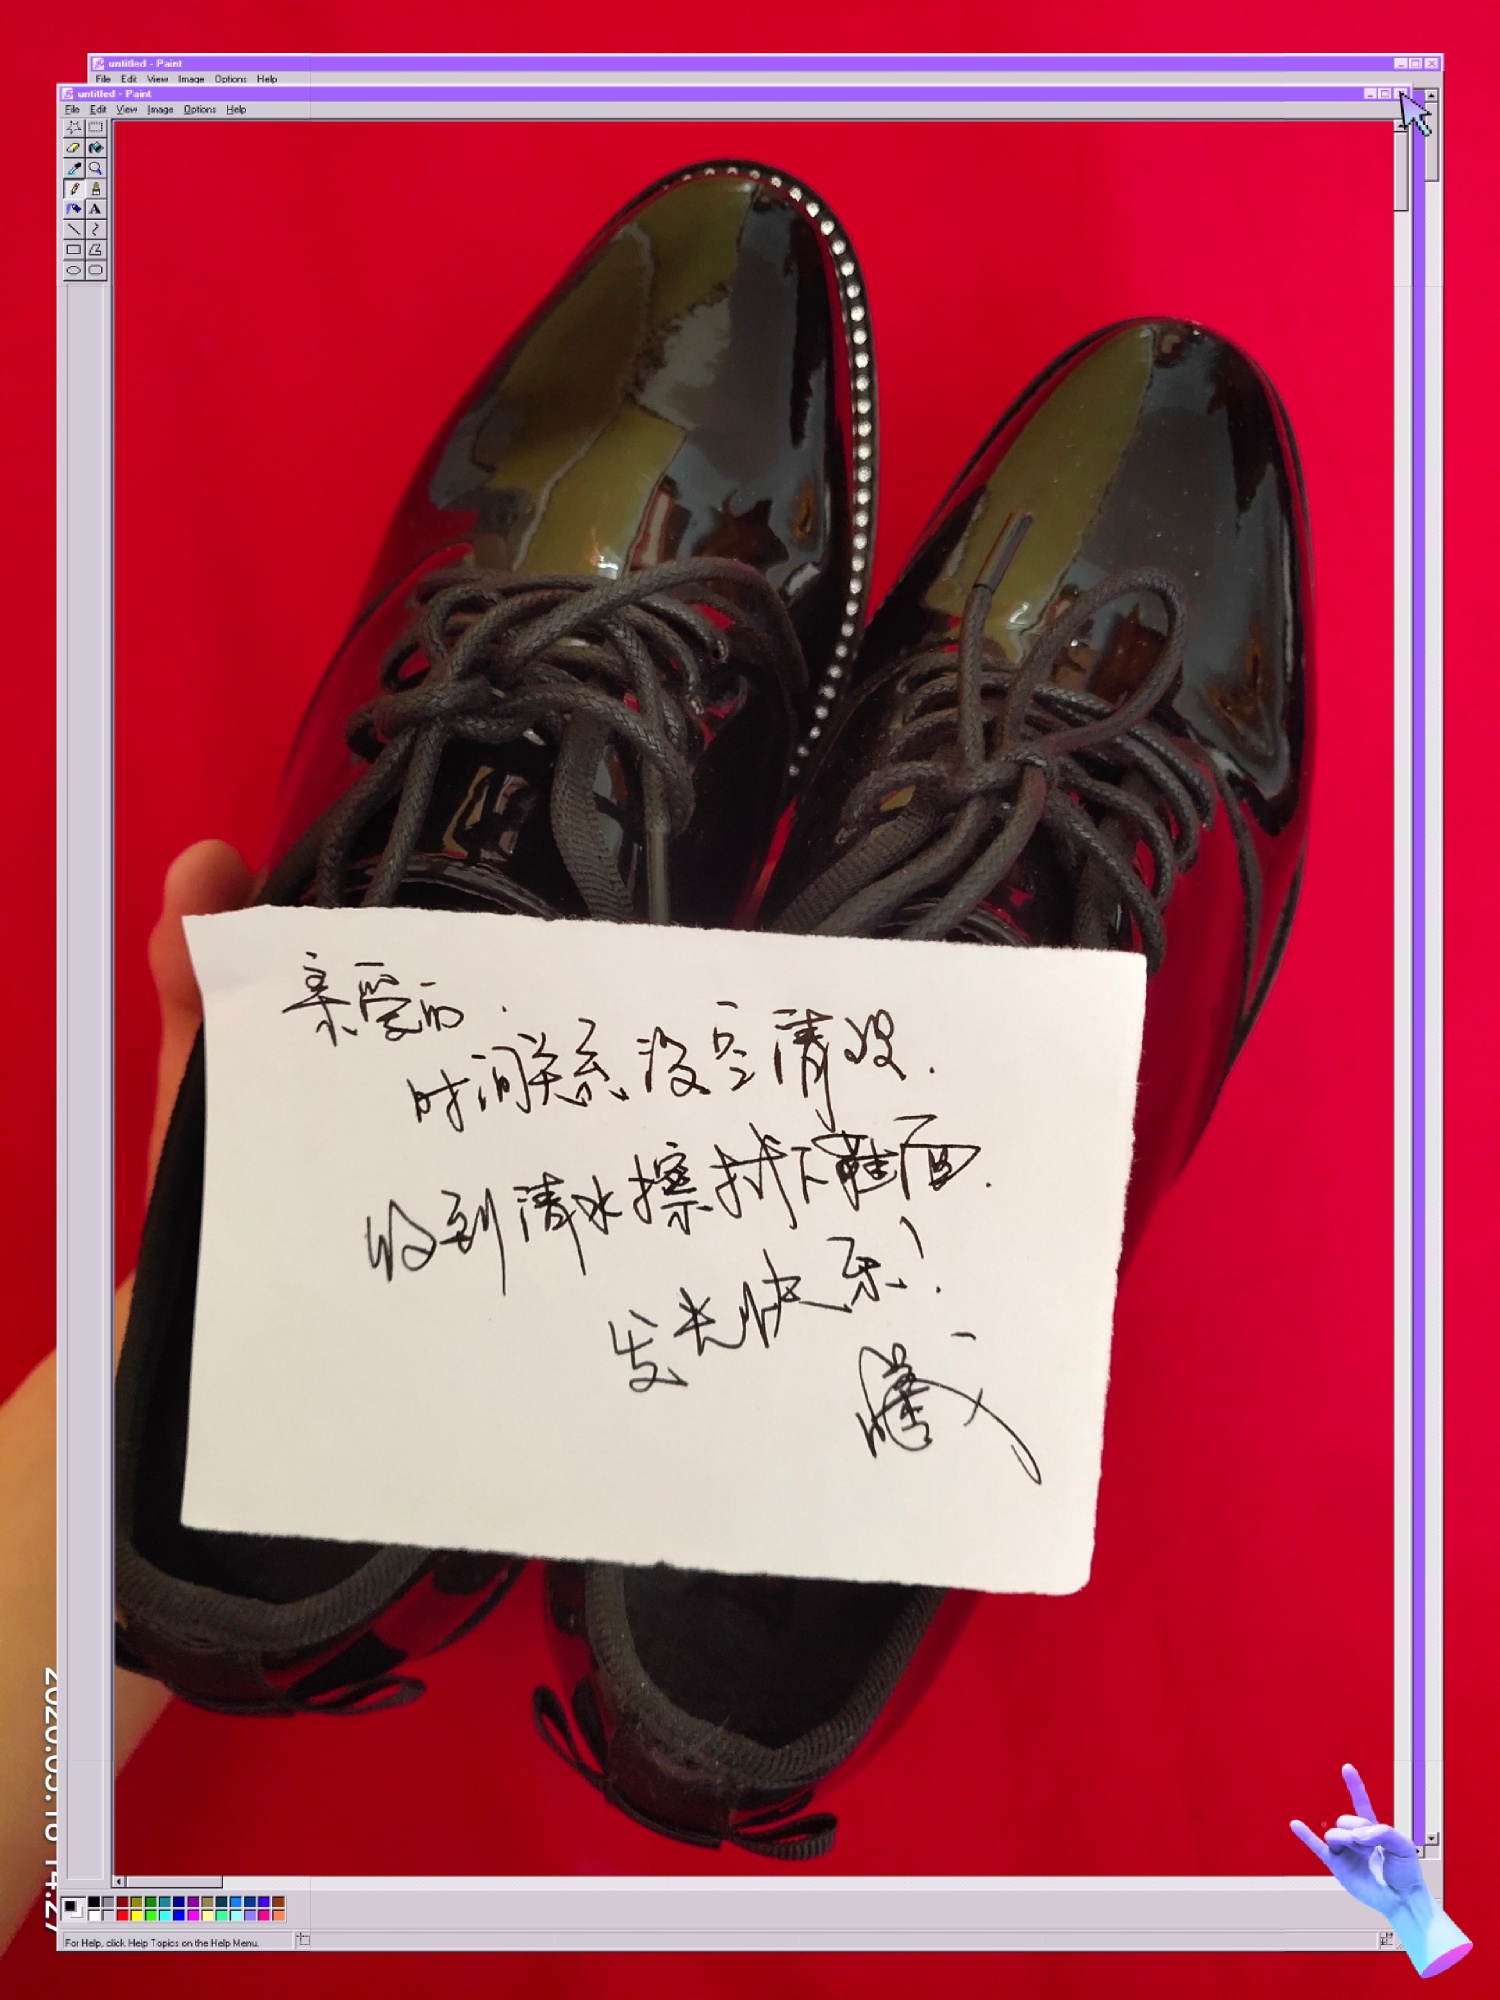 untitled - Paint
File Edit View Image Options Help
untitled - Paint
File Edit View Image Options Help
亲爱的.
时间关系没空清理.
收到清水擦拭下鞋面.
发光快乐!
For Help, click Help Topics on the Help Menu.